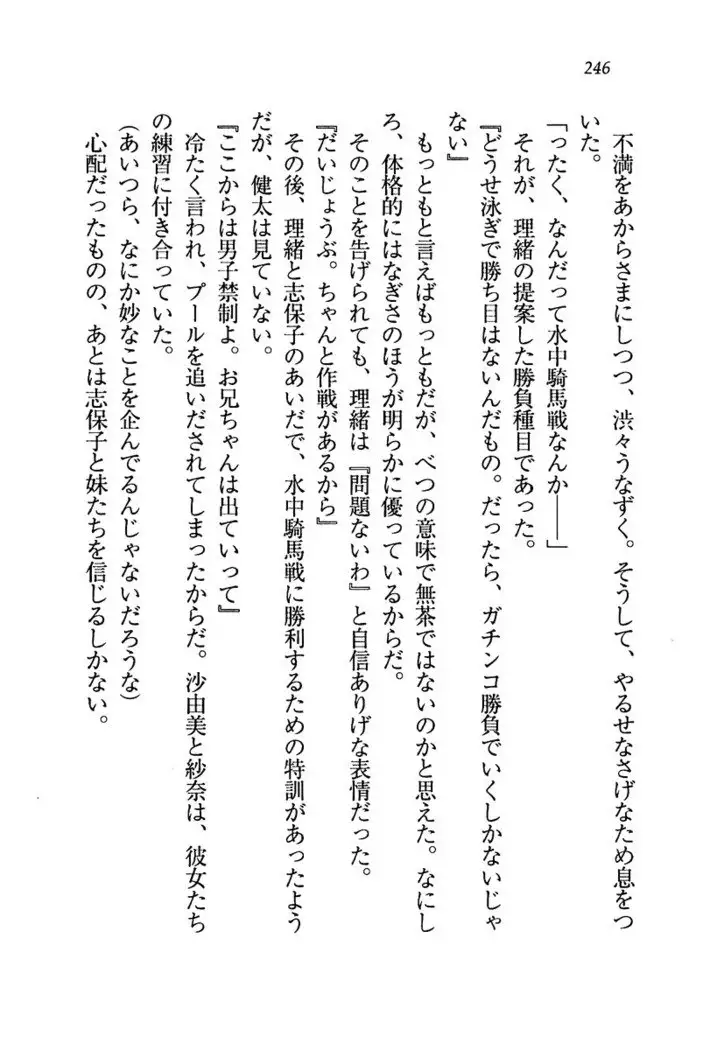 246
不満をあからさまにしつつ、渋々うなずく。そうして、やるせなさげなため息をつ
いた。
「ったく、なんだって水中騎馬戦なんか――」
それが、理緒の提案した勝負種目であった。
『どうせ泳ぎで勝ち目はないんだもの。だったら、ガチンコ勝負でいくしかないじゃ
ない』
もっともと言えばもっともだが、べつの意味で無茶ではないのかと思えた。なにし
ろ、体格的にはなぎさのほうが明らかに優っているからだ。
そのことを告げられても、理緒は『問題ないわ』と自信ありげな表情だった。
『だいじょうぶ。ちゃんと作戦があるから』
その後、理緒と志保子のあいだで、水中騎馬戦に勝利するための特訓があったよう
だが、健太は見ていない。
『ここからは男子禁制よ。お兄ちゃんは出ていって』
冷たく言われ、プールを追いだされてしまったからだ。沙由美と紗奈は、彼女たち
の練習に付き合っていた。
(あいつら、なにか妙なことを企んでるんじゃないだろうな)
心配だったものの、あとは志保子と妹たちを信じるしかない。